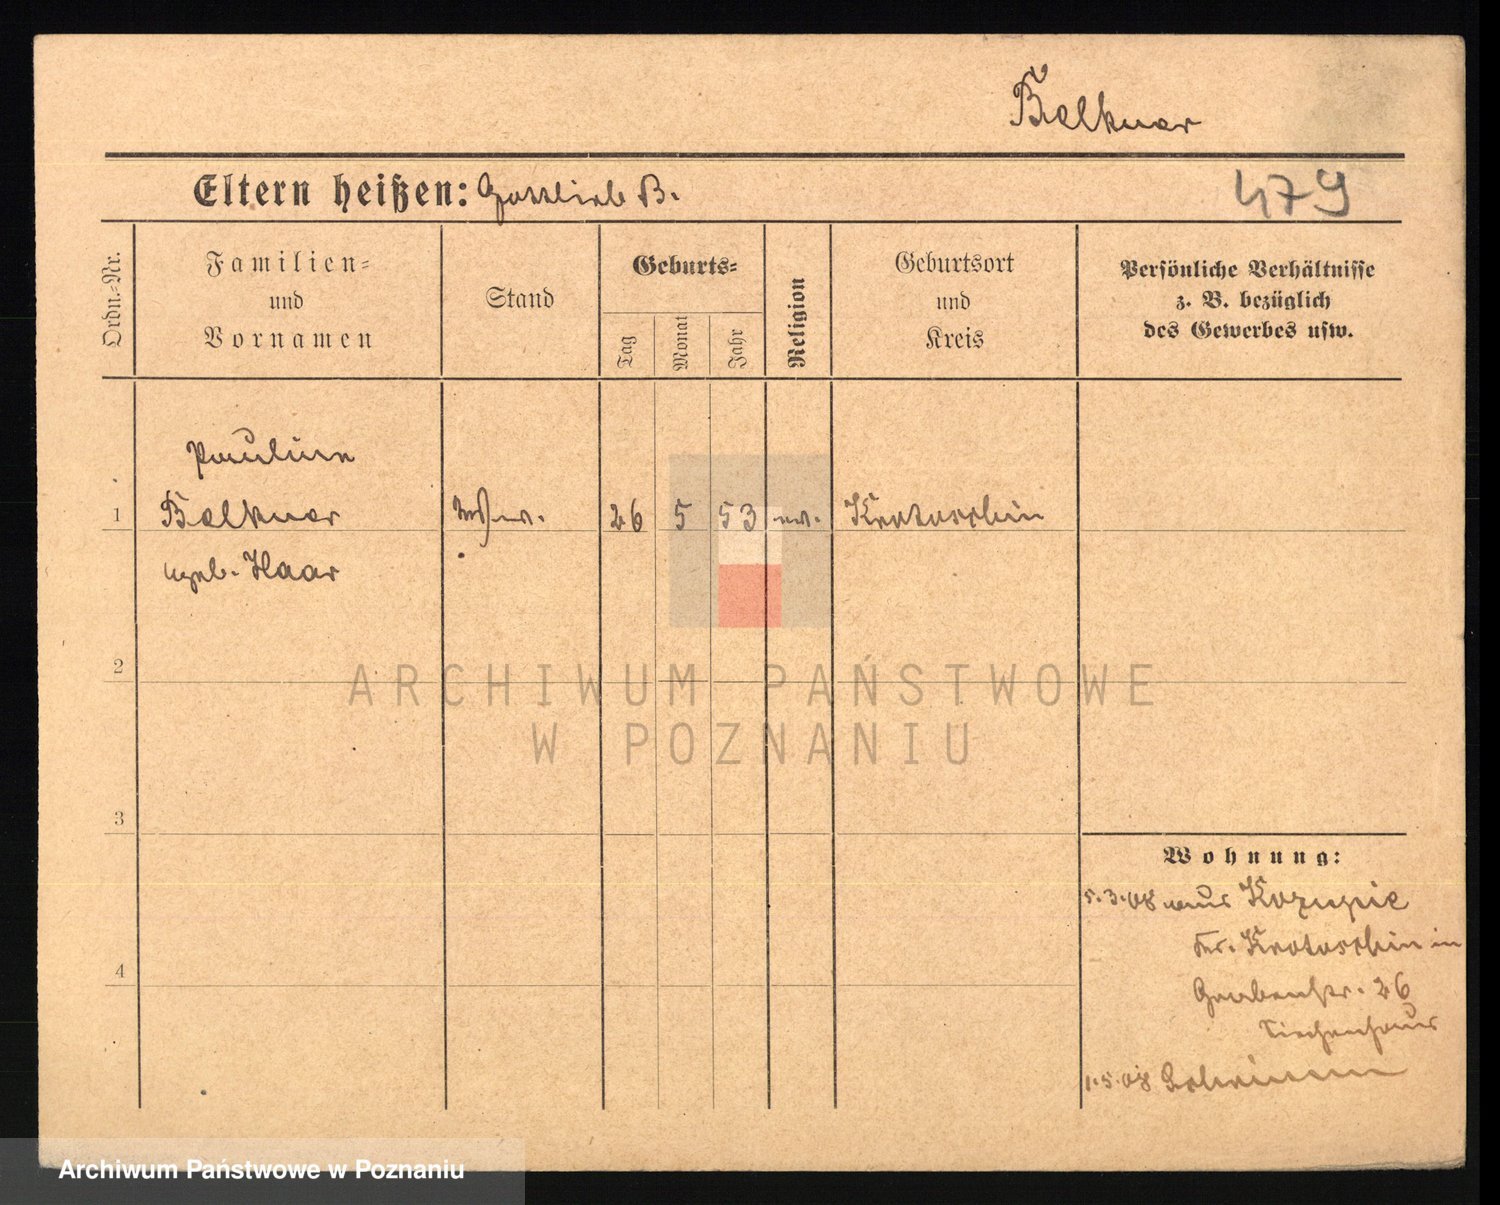 Belkner
Eltern heißen: Gottlieb B.
479
Ordn.-Nr.
Familien-
und
Vornamen
Stand
Geburts-
Tag
Monat
Jahr
Religion
Geburtsort
und
Kreis
Persönliche Verhältnisse
z. B. bezüglich
des Gewerbes usw.
Pauline
1 Belkner 26 5 53 ev. Krotoschin
geb. Haar
2
3
4
ARCHIWUM PAŃSTWOWE
W POZNANIU
Wohnung:
5.3.08 aus
Kr. Krotoschin in
Grabenstr. 26
1.5.08
Archiwum Państwowe w Poznaniu